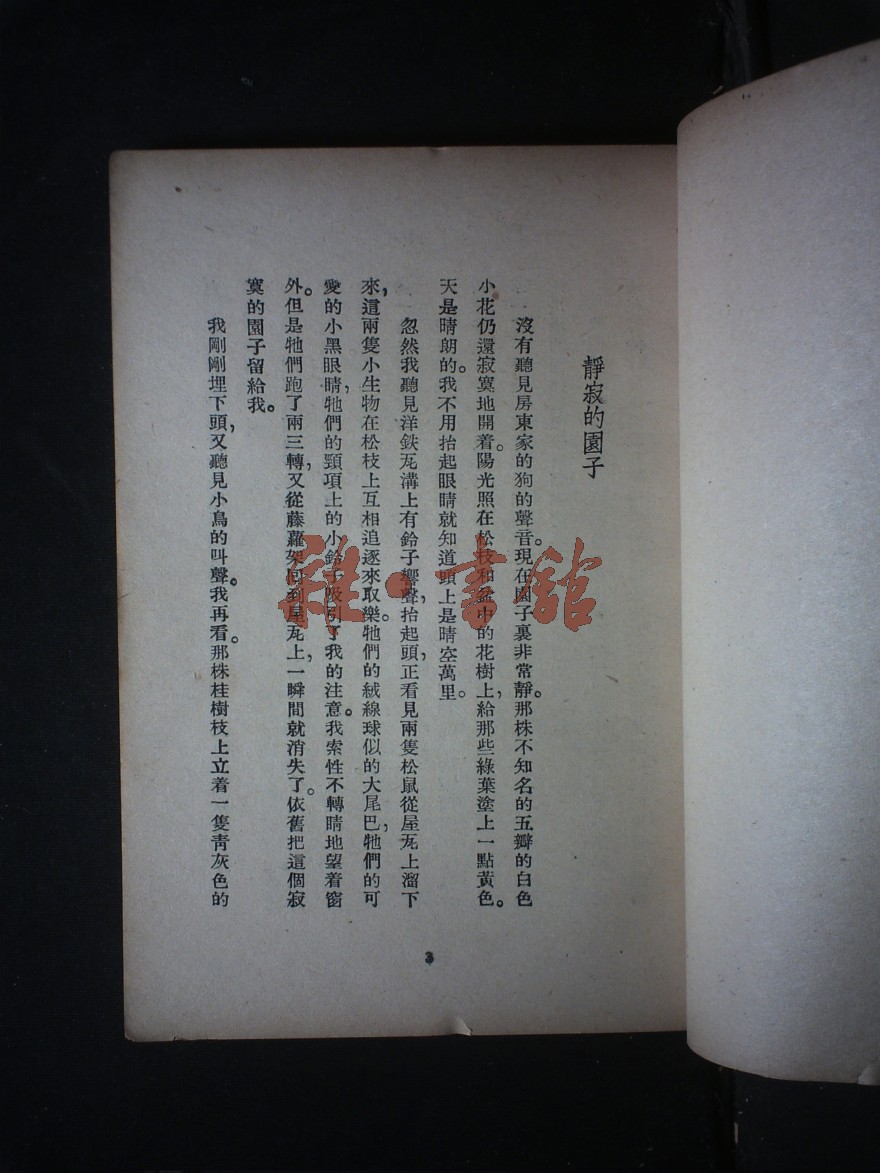 靜寂的園子
沒有聽見房東家的狗的聲音。現在園子裏非常靜。那株不知名的五瓣的白色
小花仍還寂寞地開着。陽光照在松枝和盆中的花樹上，給那些綠葉塗上一點黃色。
天是晴朗的。我不用抬起眼睛就知道頭上是晴空萬里。
忽然我聽見洋鉄瓦溝上有鈴子響聲，抬起頭，正看見兩隻松鼠從屋瓦上溜下
來，這兩隻小生物在松枝上互相追逐來取樂。牠們的絨線球似的大尾巴，牠們的可
愛的小黑眼睛，牠們的頸項上的小鈴子吸引了我的注意。我索性不轉睛地望着窗
外。但是牠們跑了兩三轉，又從藤蘿架回到屋瓦上，一瞬間就消失了。依舊把這個寂
寞的園子留給我。
我剛剛埋下頭，又聽見小鳥的叫聲。我再看。那株桂樹枝上立着一隻青灰色的
3
雜·書館